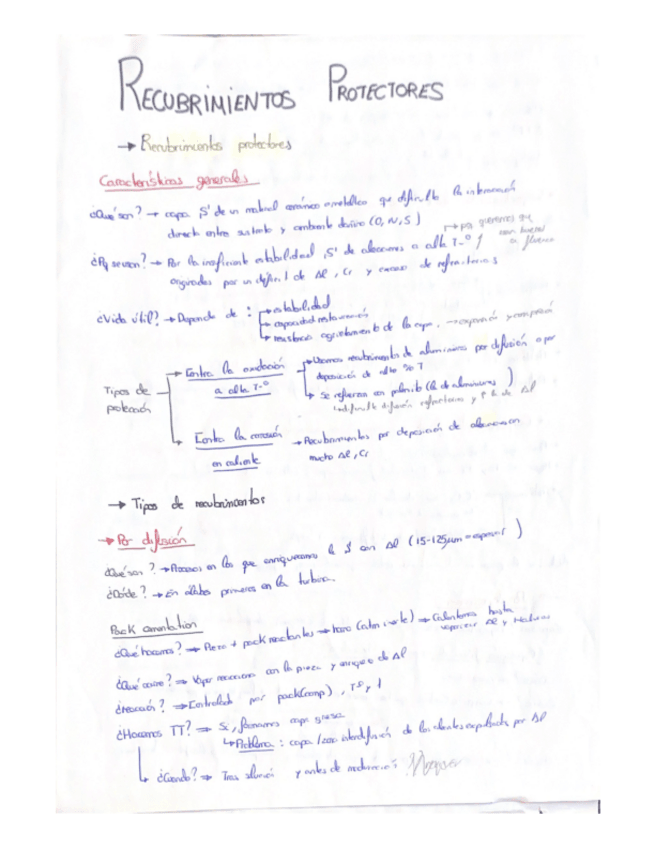 RECUBRIMIENTOS PROTECTORES
→ Recubrimientos protectores
Características generales
¿Qué son? → capa S' de un material cerámico o metálico que dificulta la interacción
directa entre sustrato y ambiente dañino (O, N, S)
¿Pq se usan? → Por la insuficiente estabilidad S' de aleaciones a alta Tº
originadas por un déficit de Al, Cr y exceso de refractarios
¿Vida útil? → Depende de : → estabilidad
→ capacidad restauración
→ resistencia agrietamiento de la capa → expansión y compresión
Tipos de protección
→ Contra la oxidación a alta Tº
→ Usamos recubrimiento de aluminuros por difusión o por
deposición de alto % T
→ Se refuerzan con platino (R de aluminuros)
→ dificulta difusión refractarios y R de Al
→ Contra la corrosión en caliente → Recubrimientos por deposición de aleaciones con
mucho Al, Cr
→ Tipos de recubrimientos
→ Por difusión
¿Qué son? → Procesos en los que enriquecemos la S con Al (15-125μm = espesor)
¿Dónde? → En álabes primeros en la turbina.
Pack cementation
¿Qué hacemos? → Pieza + pack reactantes → horno (atm inerte) → Calentamos hasta
vaporizar Al y
¿Qué ocurre? → Vapor reacciona con la pieza y enriquece de Al
¿Reacción? → Controlada por pack (comp), Tº y t
¿Hacemos TT? → Sí, formamos capa gruesa
→ Problema: capa de los álabes por Al
→ ¿Cuándo? → Tras y antes de mecanización